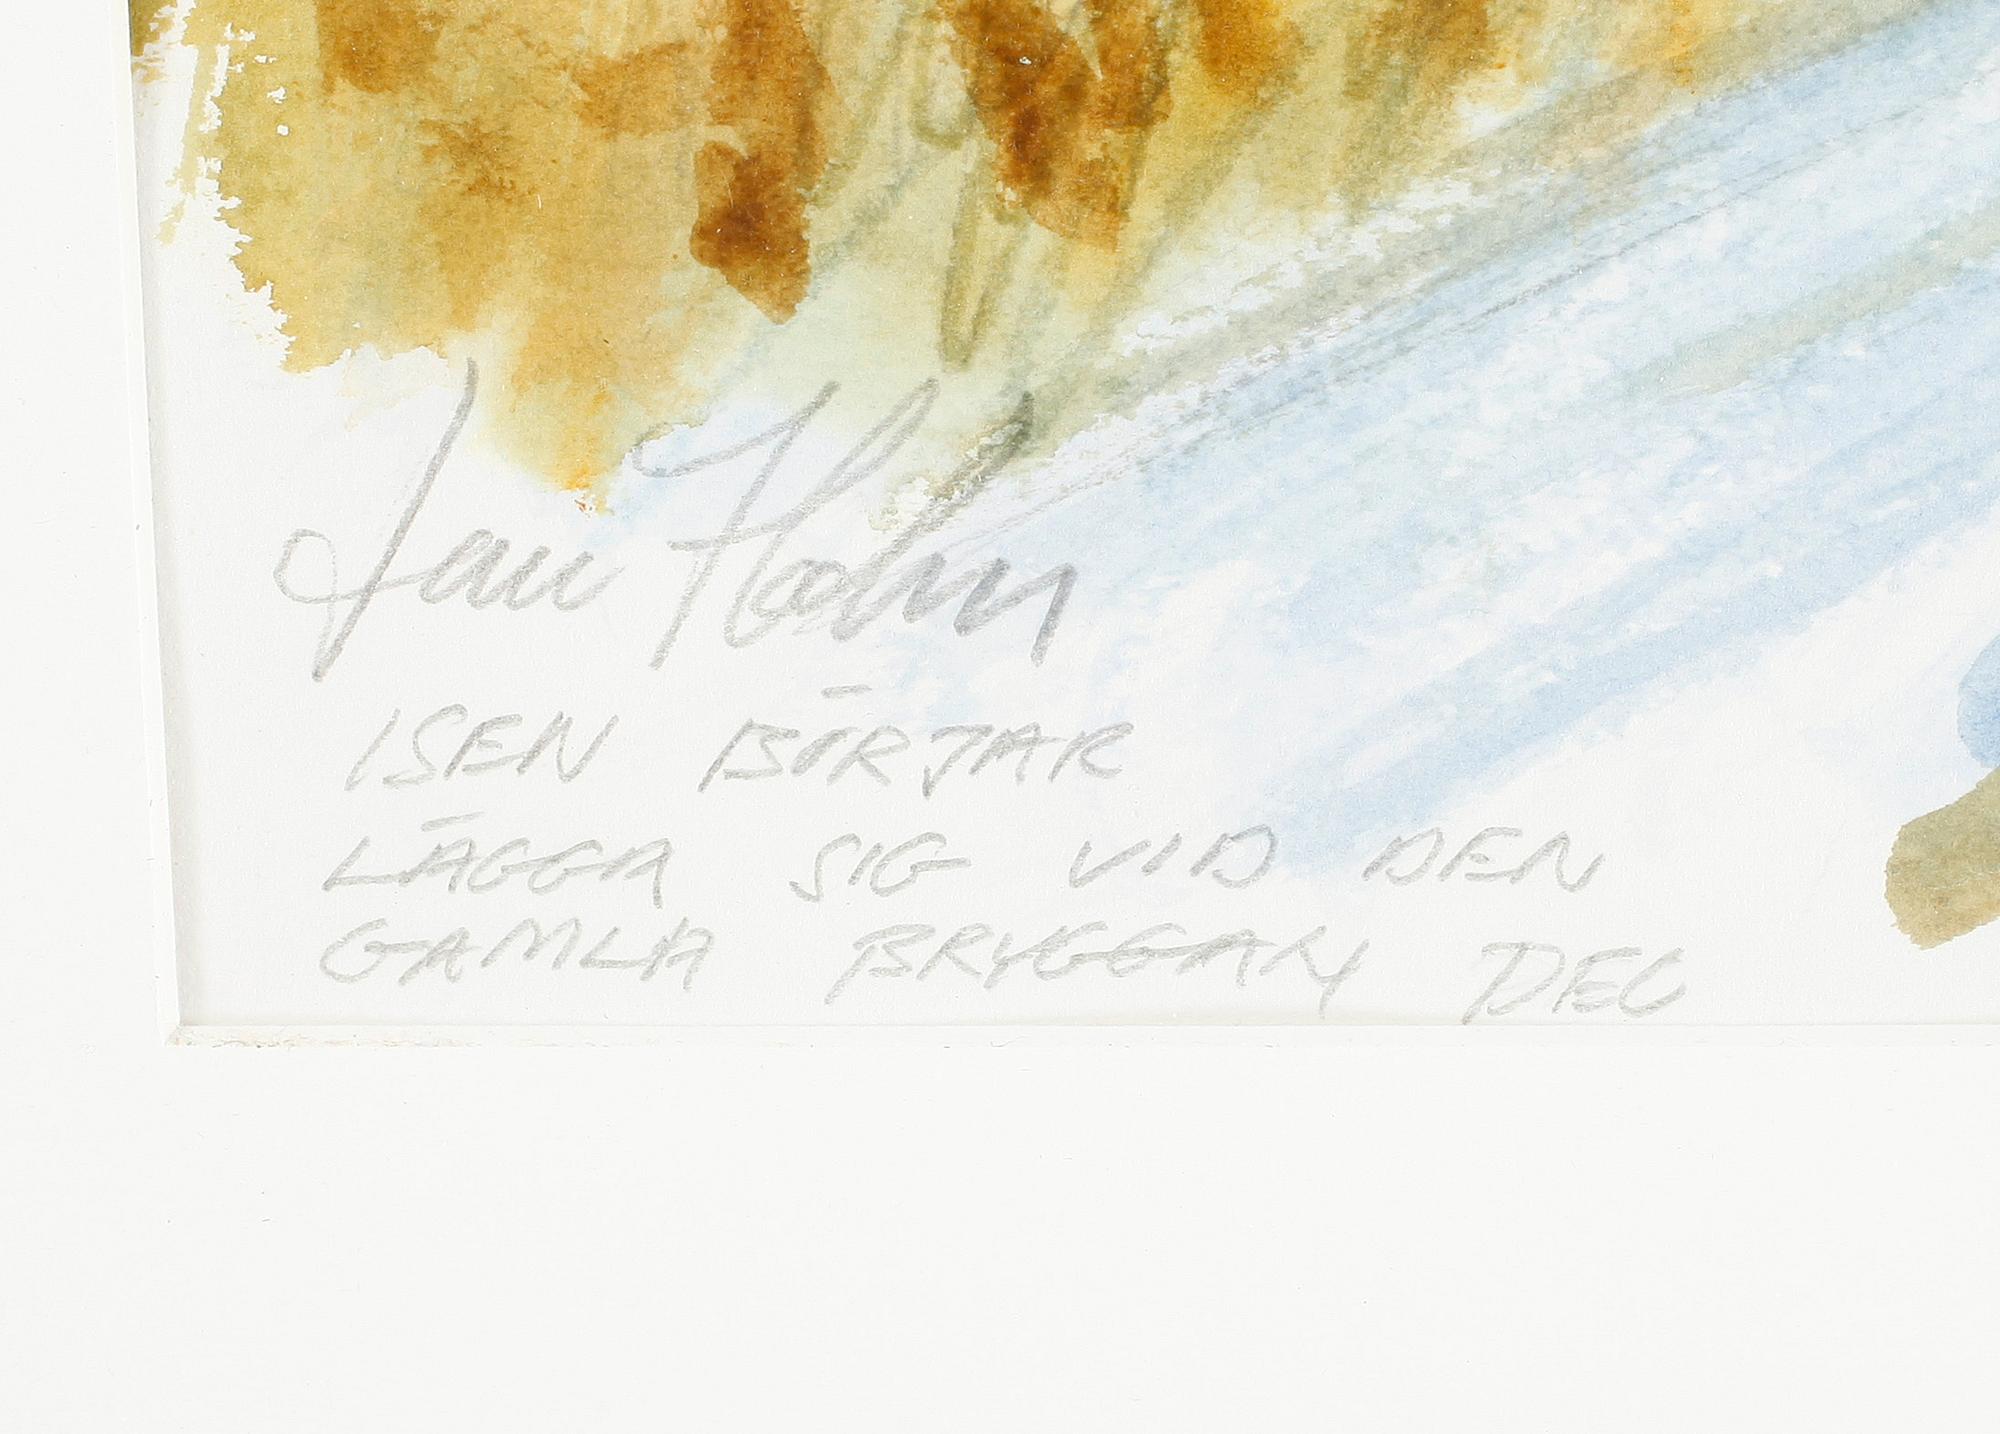 Jan Holm
ISEN BÖRJAR
LÄGGA SIG VID DEN
GAMLA BRYGGAN DEC